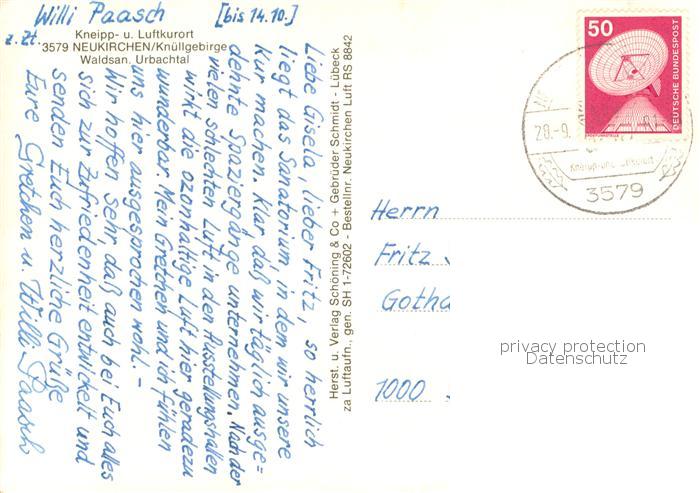 Willi Paasch [bis 14.10.]
z. Zt. Kneipp- u. Luftkurort
3579 NEUKIRCHEN/Knüllgebirge
Waldsan. Urbachtal
Liebe Gisela, lieber Fritz, so herrlich
liegt das Sanatorium, in dem wir unsere
Kur machen. Klar, daß wir täglich ausge=
dehnte Spaziergänge unternehmen. Nach der
vielen schlechten Luft in den Ausstellungshallen
wirkt die ozonhaltige Luft hier geradezu
wunderbar. Mein Gretchen und ich fühlen
uns hier ausgesprochen wohl. –
Wir hoffen sehr, daß auch bei Euch alles
sich zur Zufriedenheit entwickelt und
senden Euch herzliche Grüße
Eure Gretchen u. Willi Paasch
Herst. u. Verlag Schöning & Co + Gebrüder Schmidt - Lübeck
za Luftaufn., gen. SH 1-72602 - Bestellnr. Neukirchen Luft RS 8842
50
DEUTSCHE BUNDESPOST
28.-9.
Kneipp-und Luftkurort
3579
Herrn
Fritz
Gotha
1000
privacy protection
Datenschutz